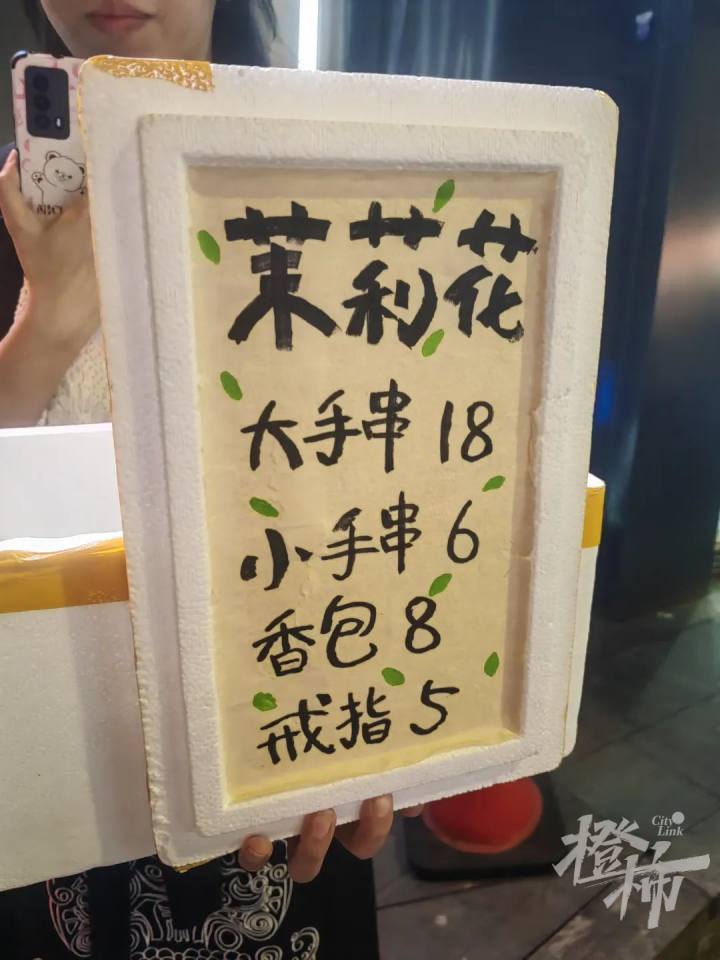 茉莉花
大手串 18
小手串 6
香包 8
戒指 5
City Link
橙柿